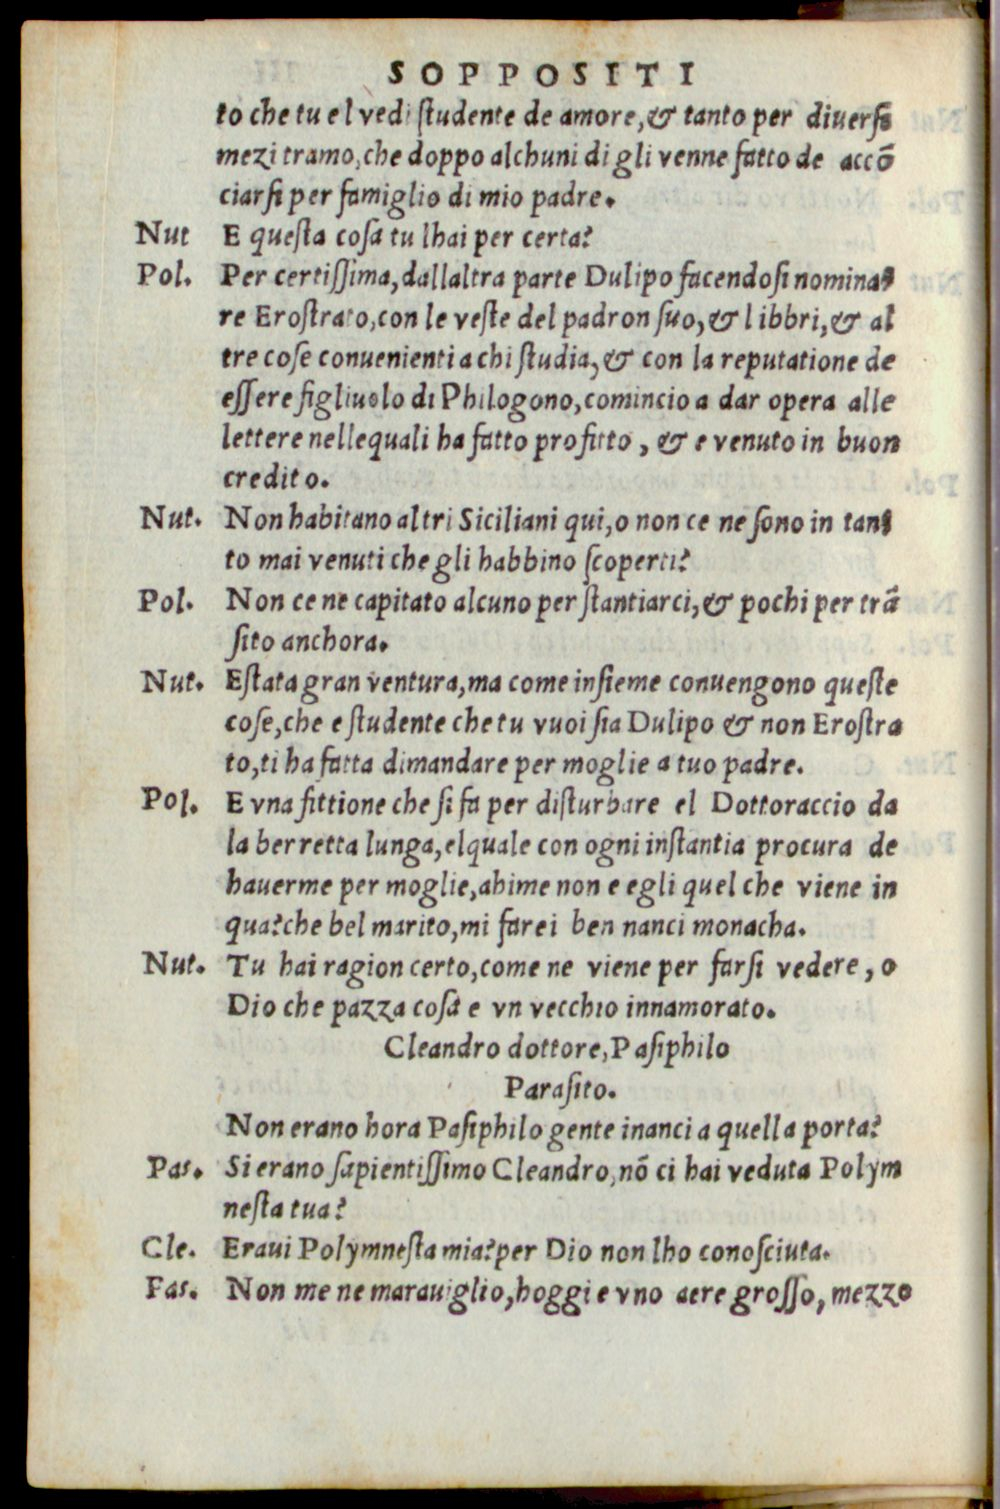 SOPPOSITI
to che tu el vedi ſtudente de amore, & tanto per diuerſi
mezi tramo, che doppo alchuni di gli venne fatto de accō
ciarſi per famiglio di mio padre.
Nut E queſta coſa tu lhai per certa?
Pol. Per certiſſima, dallaltra parte Dulipo facendoſi nomina-
re Eroſtrato, con le veſte del padron ſuo, & libbri, & al
tre coſe conuenienti a chi ſtudia, & con la reputatione de
eſſere figliuolo di Philogono, comincio a dar opera alle
lettere nellequali ha fatto profitto, & e venuto in buon
credito.
Nut. Non habitano altri Siciliani qui, o non ce ne ſono in tan-
to mai venuti che gli habbino ſcoperti?
Pol. Non ce ne capitato alcuno per ſtantiarci, & pochi per trā
ſito anchora.
Nut. Eſtata gran ventura, ma come inſieme conuengono queſte
coſe, che e ſtudente che tu vuoi ſia Dulipo & non Eroſtra
to, ti ha fatta dimandare per moglie a tuo padre.
Pol. E vna fittione che ſi fa per diſturbare el Dottoraccio da
la berretta lunga, elquale con ogni inſtantia procura de
hauerme per moglie, ahime non e egli quel che viene in
qua? che bel marito, mi farei ben nanci monacha.
Nut. Tu hai ragion certo, come ne viene per farſi vedere, o
Dio che pazza coſa e vn vecchio innamorato.
Cleandro dottore, Paſiphilo
Paraſito.
Non erano hora Paſiphilo gente inanci a quella porta?
Pas. Si erano ſapientiſſimo Cleandro, nō ci hai veduta Polym
neſta tua?
Cle. Eraui Polymneſta mia? per Dio non lho conoſciuta.
Pas. Non me ne marauiglio, hoggi e vno aere groſſo, mezzo